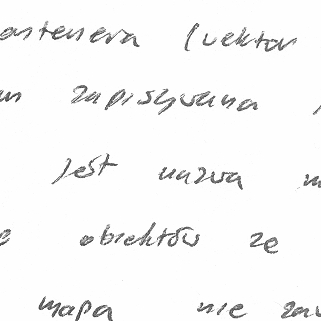 kontenera (wektor
zapisywana
jest nazwa
obiektów ze
mapa nie